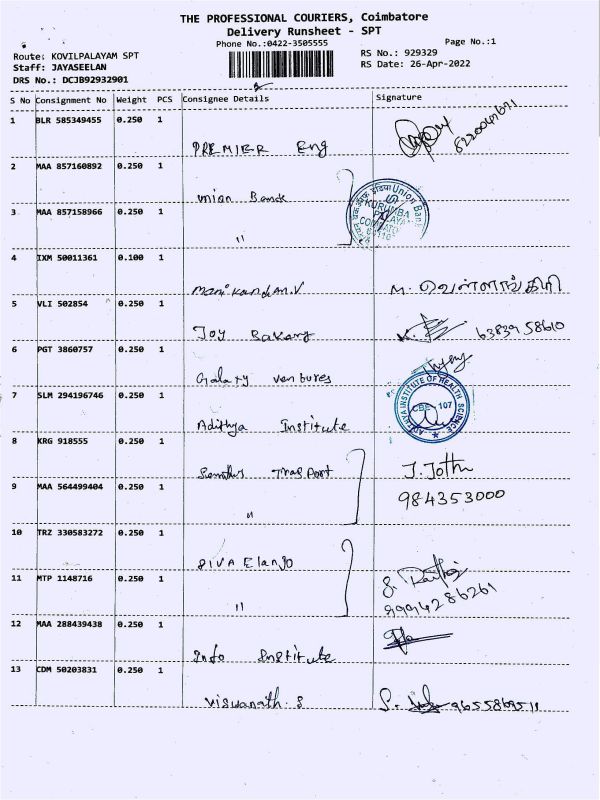 THE PROFESSIONAL COURIERS, Coimbatore
Delivery Runsheet - SPT
Phone No.:0422-3505555
Page No.:1
Route: KOVILPALAYAM SPT
RS No.: 929329
Staff: JAYASEELAN
RS Date: 26-Apr-2022
DRS No.: DCJB92932901
S No Consignment No Weight PCS Consignee Details Signature
1 BLR 585349455 0.250 1
PREMIER Eng
2 MAA 857160892 0.250 1
union Bank
3 MAA 857158966 0.250 1
"
Union Bank
KURUMBA
4 IXM 50011361 0.100 1
Manikandan.V M. வெள்ளாங்கிரி
5 VLI 502854 0.250 1
Joy Bakery 63839 58610
6 PGT 3860757 0.250 1
Galaxy ventures
7 SLM 294196746 0.250 1
Adithya Institute
ADITHYA INSTITUTE OF HEALTH SCIENCE
CBE 107
8 KRG 918555 0.250 1
Transport J. Jothi
9 MAA 564499404 0.250 1
" 984353000
10 TRZ 330583272 0.250 1
SIVA Elango
11 MTP 1148716 0.250 1
" 9994286261
12 MAA 288439438 0.250 1
Info Institute
13 CDM 50203831 0.250 1
Viswanath.S